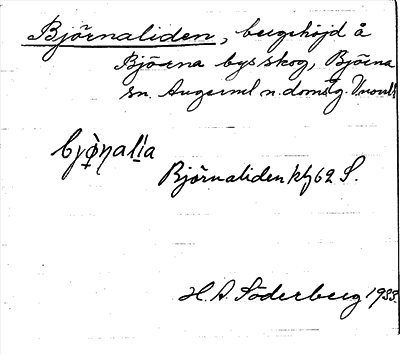 Björnaliden, bergshöjd å
Björna bys skog, Björna
sn. Ångerml n. doms g.
Björnaliden kbf 62 S.
H. A. Söderberg 1933.